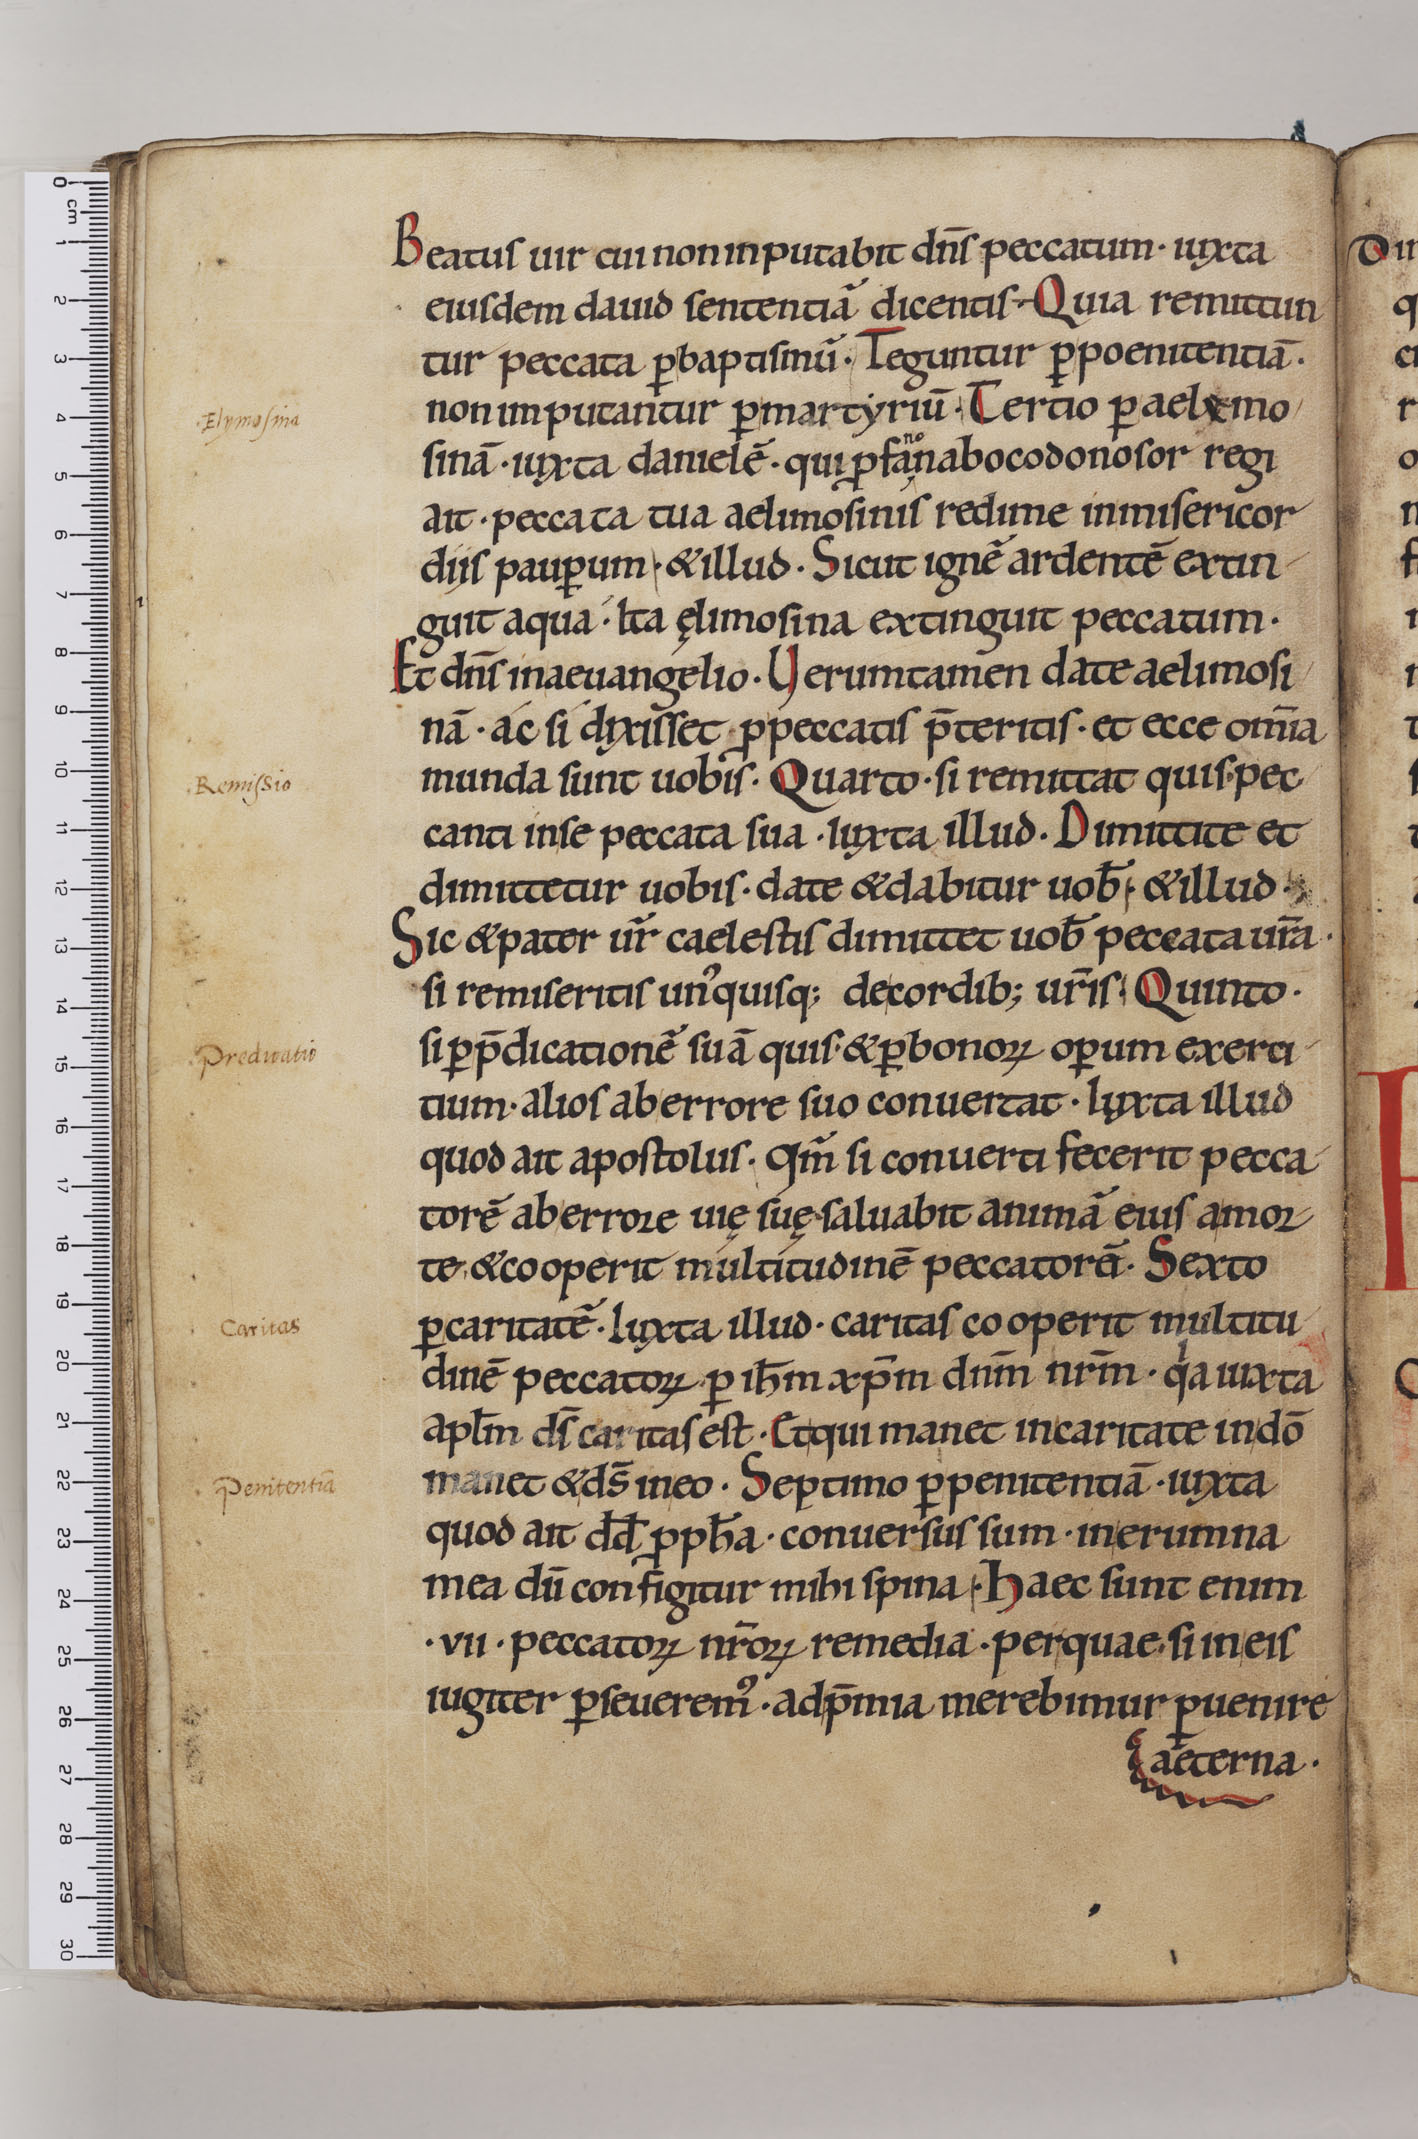 Beatus uir cui non inputabit dn̄s peccatum · iuxta
eiusdem dauid sententiā dicentis · Quia remittun
tur peccata ꝑ baptismū · Teguntur ꝑ poenitentiā ·
non imputantur ꝑ martyriū · Tertio ꝑ aelemo
Elymosina
sinā · iuxta danielē · qui ꝓfano nabocodonosor regi
ait · peccata tua aelimosinis redime in misericor
diis pauꝑum · & illud · Sicut ignē ardentē extin
guit aqua · Ita ęlimosina extinguit peccatum ·
Et dn̄s in aeuangelio · Uerumtamen date aelimosi
nā · ac si dixisset ꝓ peccatis p̄teritis · et ecce om̄ia
munda sunt uobis · Quarto · si remittat quis pec
Remissio
canti in se peccata sua · Iuxta illud · Dimittite et
dimittetur uobis · date & dabitur uob̄ · & illud ·
Sic & pater ur̄ caelestis dimittet uob̄ peccata ur̄a ·
si remiseritis unꝰquisq; de cordib; ur̄is · Quinto ·
si ꝑ p̄dicationē suā quis · & ꝑ bonoꝝ oꝑum exerci
Predicatio
tium · alios ab errore suo conuertat · Iuxta illud
quod ait apostolus · qm̄ si conuerti fecerit pecca
torē ab errore uię suę saluabit animā eius a mor
te · & cooperit multitudinē peccatorē · Sexto
ꝑ caritatē · Iuxta illud · caritas cooperit multitu
Caritas
dinē peccatoꝝ ꝑ ih̄m xp̄m dnm̄ nr̄m · qia iuxta
apl̄m ds̄ caritas est · Et qui manet in caritate in dō
manet & ds̄ in eo · Septimo ꝑ penitentiā · iuxta
Penitentiā
quod ait dd̄ ꝓph̄a · conuersus sum · in erumna
mea dū configitur mihi spina · Haec sunt enim
· vii · peccatoꝝ nr̄oꝝ remedia · per quae · si in eis
iugiter ꝑseueremꝰ · ad p̄mia merebimur ꝑuenire
aeterna ·